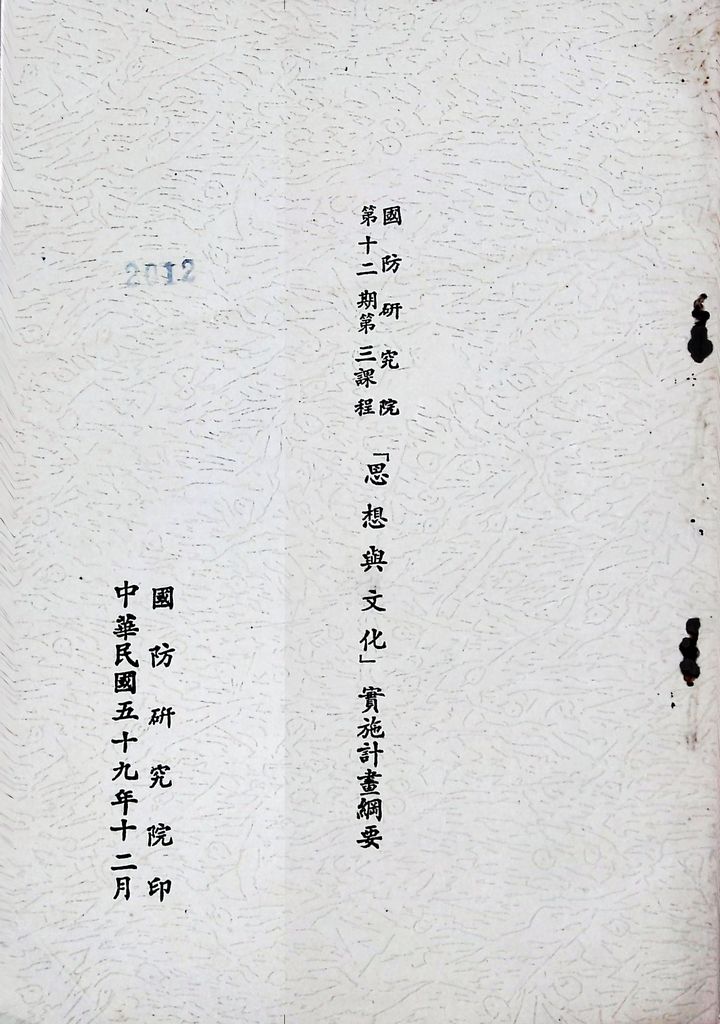 國防研究院
第十二期第三課程
「思想與文化」實施計畫綱要
國防研究院印
中華民國五十九年十二月
2012